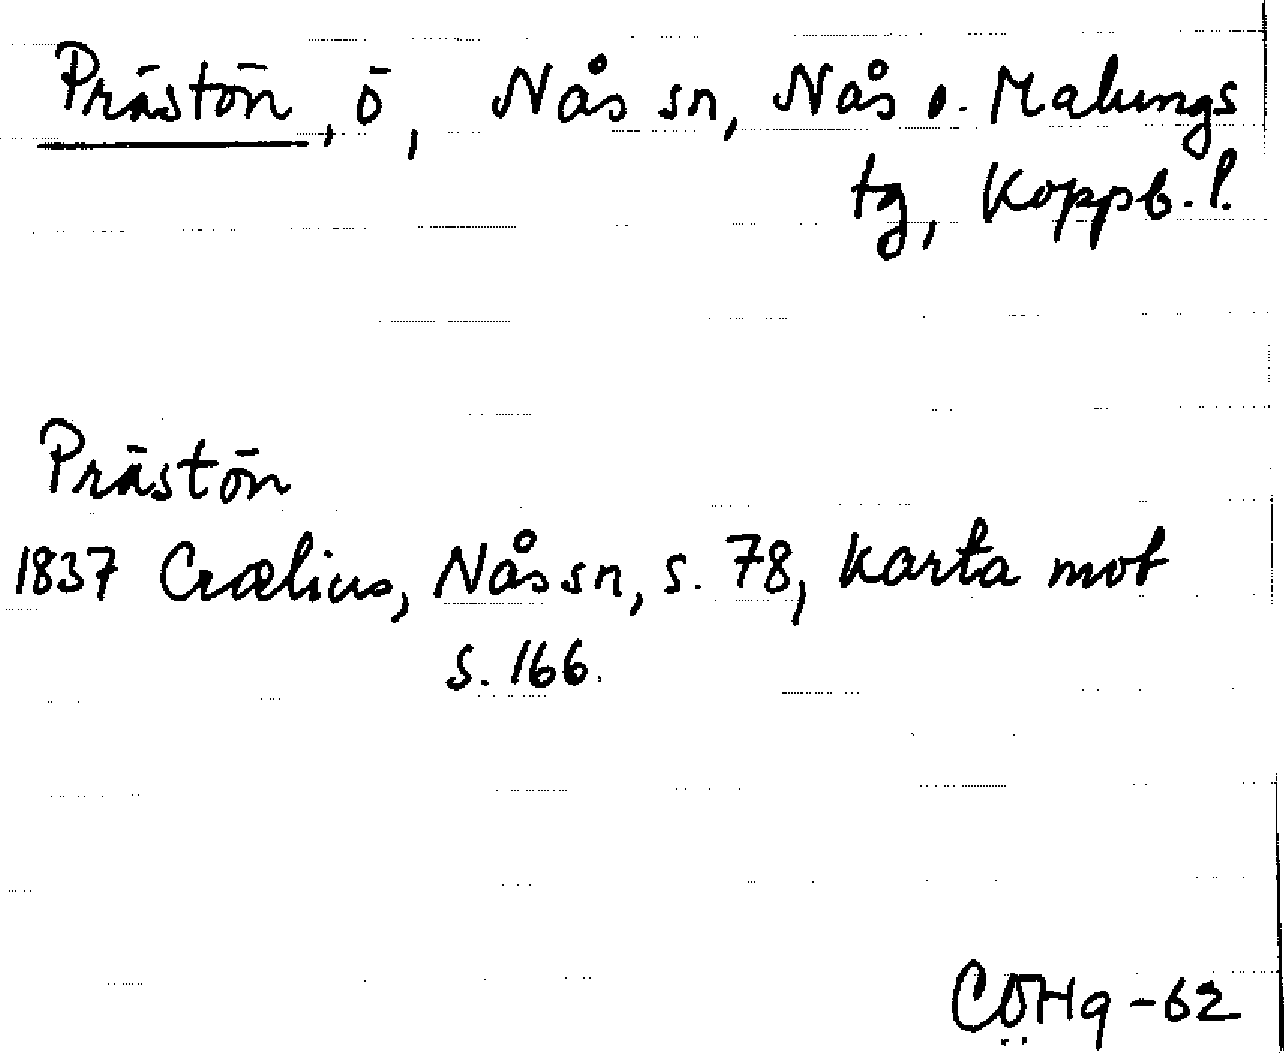 Prästön, ö, Nås sn, Nås o. Malungs
tg, Koppb. l.
Prästön
1837 Crælius, Nås sn, s. 78, karta mot
s. 166.
CÖHg -62